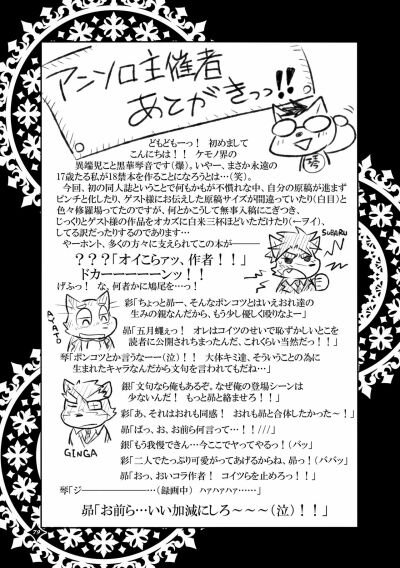 アンソロ主催者
あとがきっっ!!
琴
どもどもーっ! 初めまして
こんにちは!! ケモノ界の
異端児こと黒華琴音です(爆)。いやー、まさか永遠の
17歳たる私が18禁本を作ることになろうとは…(笑)。
今回、初の同人誌ということで何もかもが不慣れな中、自分の原稿が進まず
ピンチと化したり、ゲスト様にお伝えした原稿サイズが間違っていたり(白目)と
色々修羅場ってたのですが、何とかこうして無事入稿にこぎつき、
じっくりとゲスト様の作品をオカズに白米三杯ほどいただけたり(ーライ)、
してる訳だったりするのであります…
やーホント、多くの方々に支えられてこの本が――
SUBARU
???「オイこらァッ、作者!!」
ドカーーーーーンッ!!
げふっ! な、何者かに鳩尾を…っ!
AYATO
彩「ちょっと昴ー、そんなポンコツとはいえおれ達の
生みの親なんだから、もう少し優しく殴りなよー」
昴「五月蠅ぇっ! オレはコイツのせいで恥ずかしいとこを
読者に公開されちまったんだ、これくらい当然だっ!!」
琴「ポンコツとか言うなーー(泣)!! 大体キミ達、そういうことの為に
生まれたキャラなんだから文句を言われてもだね…」
GINGA
銀「文句なら俺もあるぞ、なぜ俺の登場シーンは
少ないんだ! もっと昴と絡ませろ!!」
彩「あ、それはおれも同感! おれも昴と合体したかった~!」
昴「ばっ、お、お前ら何言って…!!///」
銀「もう我慢できん…今ここでヤってやるっ!(バッ」
彩「二人でたっぷり可愛がってあげるからね、昴っ!(ババッ」
昴「おっ、おいコラ作者! コイツらを止めろっ!!」
琴「ジー――――…(録画中) ハァハァハァ……」
昴「お前ら…いい加減にしろ~~~(泣)!!」